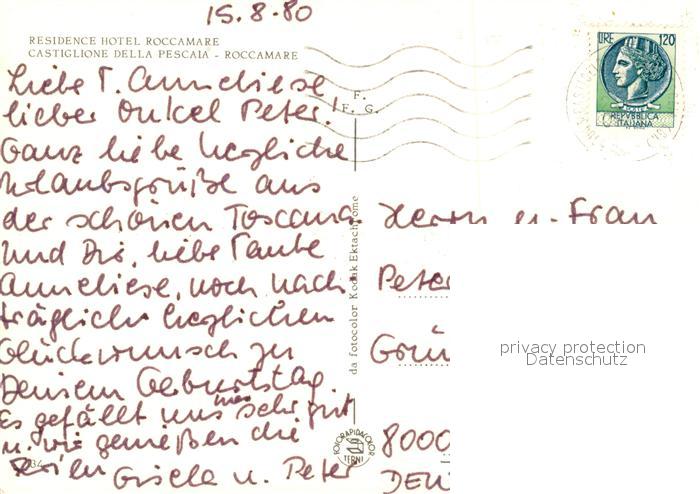 15.8.80
RESIDENCE HOTEL ROCCAMARE
CASTIGLIONE DELLA PESCAIA - ROCCAMARE
LIRE 120
POSTE
REPVBBLICA
ITALIANA
F.
F. G.
Liebe T. Anneliese
lieber Onkel Peter!
Ganz liebe herzliche
Urlaubsgrüße aus
der schönen Toscana.
Und Dir, liebe Tante
Anneliese, noch nach
träglich herzlichen
Glückwunsch zu
Deinem Geburtstag.
Es gefällt uns hier sehr gut
u. wir genießen die
Ferien Gisela u. Peter
da fotocolor Kodak Ektachrome
FOTORAPIDACOLOR
TERNI
Herrn u. Frau
Peter
Grün
8000
DEU
privacy protection
Datenschutz